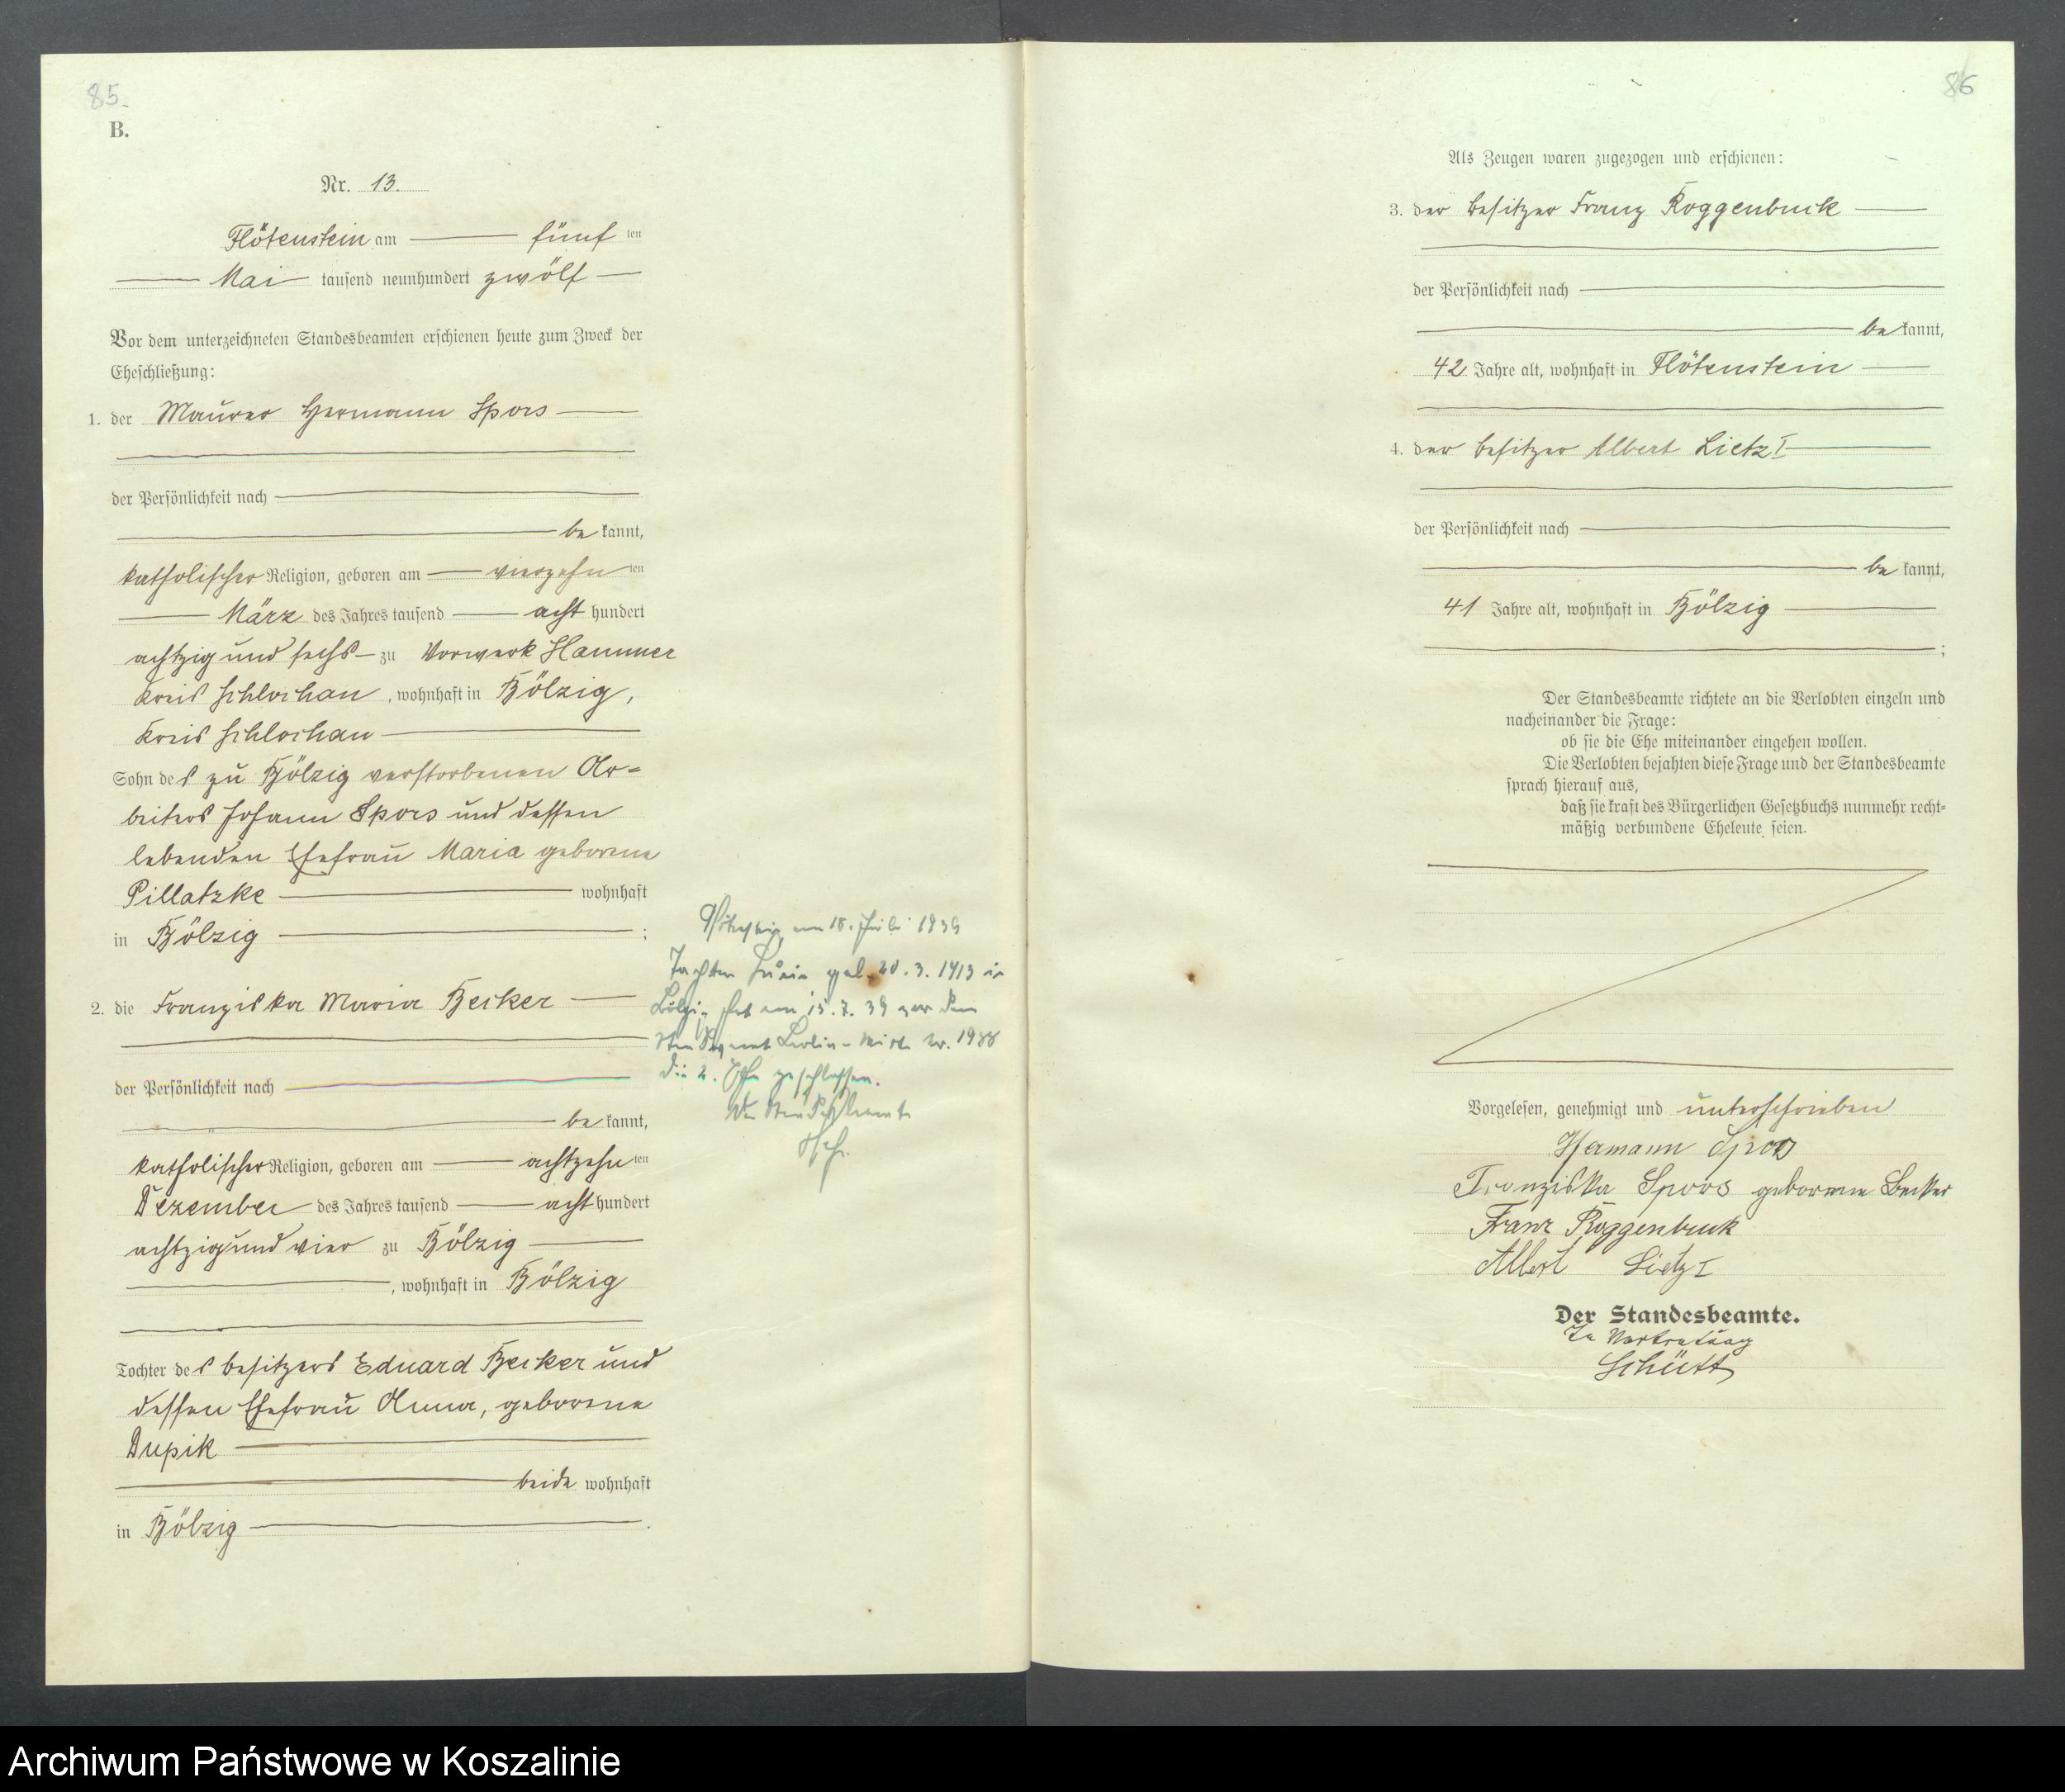 85.
B.
Nr. 13.
Flötenstein am fünf ten
Mai tausend neunhundert zwölf
Vor dem unterzeichneten Standesbeamten erschienen heute zum Zweck der
Eheschließung:
1. der Maurer Hermann Spors
der Persönlichkeit nach
be kannt,
katholischer Religion, geboren am vierzehn ten
März des Jahres tausend acht hundert
achtzig und sechs zu Vorwerk Hammer
Kreis Schlochau, wohnhaft in Bölzig,
Kreis Schlochau
Sohn des zu Bölzig verstorbenen Ar=
beiters Johann Spors und dessen
lebenden Ehefrau Maria geborene
Pillatzke wohnhaft
in Bölzig ;
2. die Franziska Maria Becker
der Persönlichkeit nach
be kannt,
katholischer Religion, geboren am achtzehn ten
Dezember des Jahres tausend acht hundert
achtzig und vier zu Bölzig
, wohnhaft in Bölzig
Tochter des Besitzers Eduard Becker und
dessen Ehefrau Anna, geborene
Dupik
beide wohnhaft
in Bölzig .
am 18. Juli 1939
Tochter geb. 20. 3. 1913 in
Bölzig hat am 15. 7. 39 vor dem
Standesamt Berlin-Mitte Nr.
die 2. Ehe geschlossen.
Der Standesbeamte
86
Als Zeugen waren zugezogen und erschienen:
3. der Besitzer Franz Roggenbuck
der Persönlichkeit nach
be kannt,
42 Jahre alt, wohnhaft in Flötenstein
4. der Besitzer Albert Lietz I
der Persönlichkeit nach
be kannt,
41 Jahre alt, wohnhaft in Bölzig
;
Der Standesbeamte richtete an die Verlobten einzeln und
nacheinander die Frage:
ob sie die Ehe miteinander eingehen wollen.
Die Verlobten bejahten diese Frage und der Standesbeamte
sprach hierauf aus,
daß sie kraft des Bürgerlichen Gesetzbuchs nunmehr recht=
mäßig verbundene Eheleute seien.
Vorgelesen, genehmigt und unterschrieben
Hermann Spors
Franziska Spors geborene Becker
Franz Roggenbuck
Albert Lietz I
Der Standesbeamte.
In Vertretung
Schütt
Archiwum Państwowe w Koszalinie